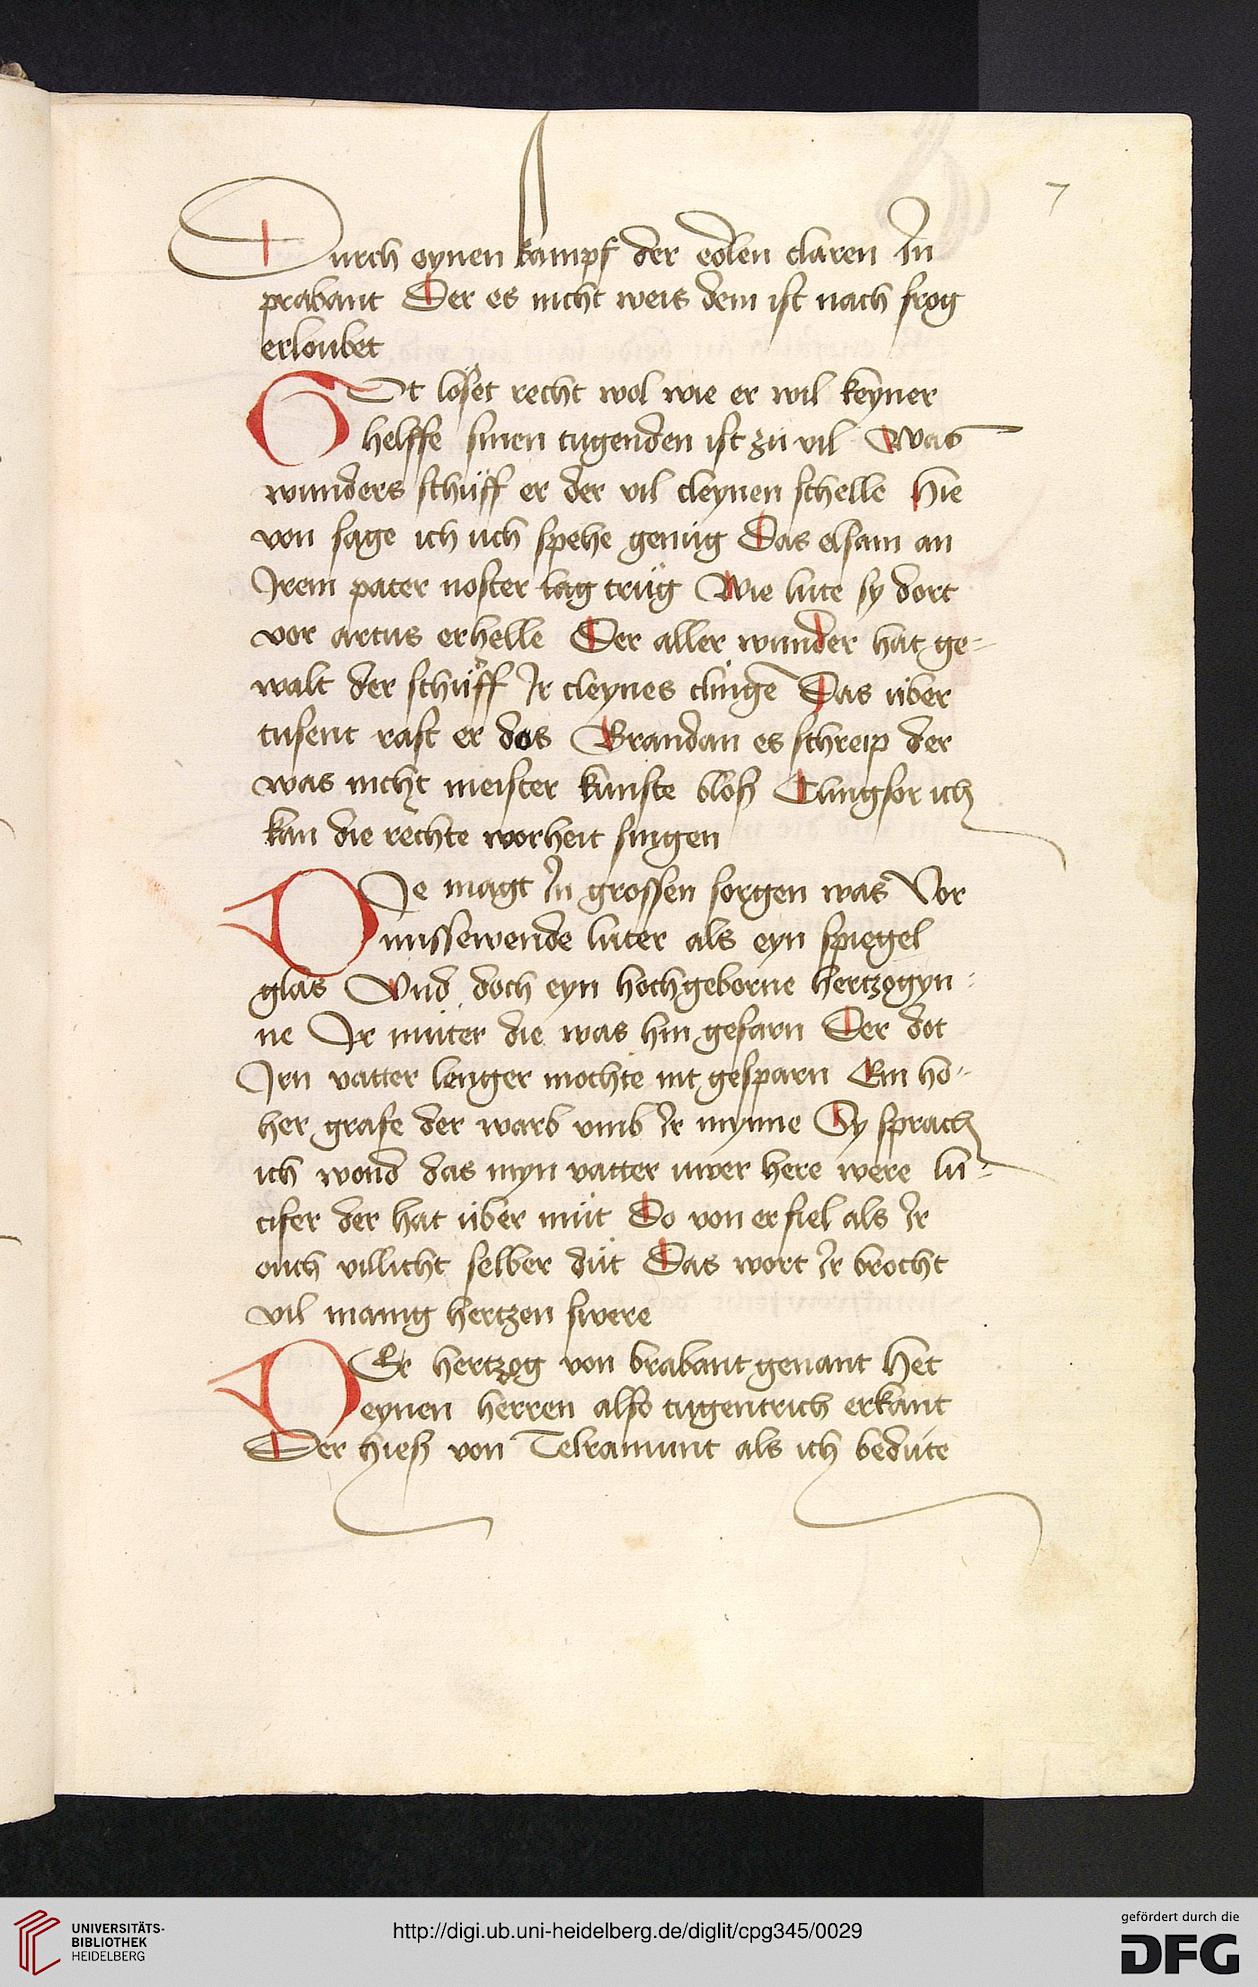 7
Durch eynen kampf der edelen claren In
prabant Der es nicht weis dem ist nach frog
erloubet
GOt loset recht wol wie er wil keyner
helffe sinen tugenden ist zu vil Was
wunders schüff er der vil cleynen schelle Hie
von sage ich uch spehe genüg Das elsam an
Irem pater noster tag trüg Wie lute sy dort
vor artus erhelle Der aller wunder hat ge-
walt der schüff Ir cleynes clinge Das über
tusent rast er dos Brandan es schreip der
was nicht meister kunste bloß Clingsor ich
kan die rechte worheit singen
DIe magt In grossen sorgen was Vor
missewende luter als eyn spiegel
glas Vnd doch eyn hochgeborne hertzogyn-
ne Ir müter die was hin gefarn Der dot
Irn vatter lenger mochte nit gesparn Ein ho-
her grafe der warb vmb Ir mynne Sy sprach
ich wond das myn vatter uwer here were lu-
cifer der hat über müt Do von er fiel als Ir
ouch villicht selber düt Das wort Ir brocht
vil manig hertzen swere
DEr hertzog von brabant genant Het
eynen herren also tugentrich erkant
Der hieß von Telramunt als ich bedüte
UNIVERSITÄTS-
BIBLIOTHEK
HEIDELBERG
http://digi.ub.uni-heidelberg.de/diglit/cpg345/0029
gefördert durch die
DFG